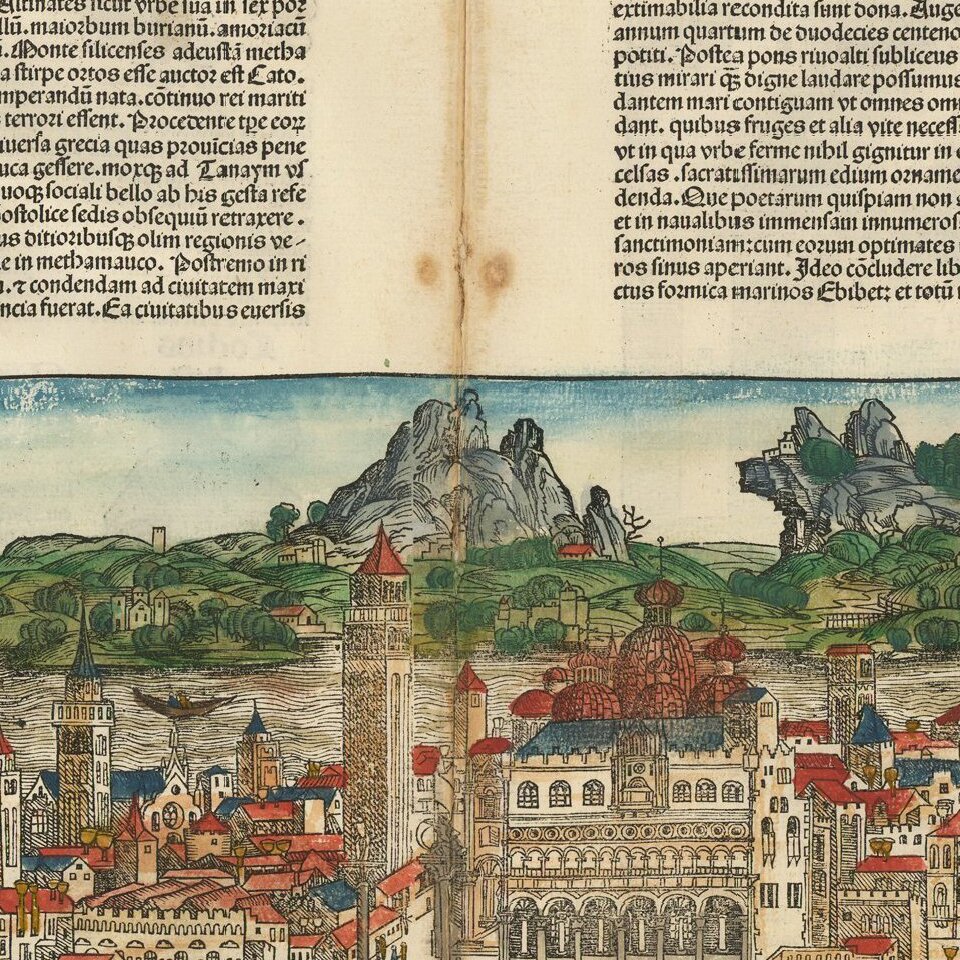 Altinates sicut vrbe sua in sex por
llū. maiorbum burianū. amoriacū
. Monte silicenses adeustā metha
a stirpe ortos esse auctor est Cato.
mperandū nata. cōtinuo rei mariti
terrori essent. Procedente tp̄e eoꝝ
iuersa grecia quas prouīcias pene
uca gessere. moxqꝫ ad Tanaym vs
uoqꝫ sociali bello ab his gesta refe
ostolice sedis obsequiū retraxere.
us ditioribusqꝫ olim regionis ve-
e in methamauco. Postremo in ri
. ⁊ condendam ad ciuitatem maxi
ncia fuerat. Ea ciuitatibus euersis
extimabilia recondita sunt dona. Auge
annum quartum de duodecies centeno
potiti. Postea pons riuoalti subliceus
tius mirari qꝫ̄ digne laudare possumus
dantem mari contiguam vt omnes om
dant. quibus fruges et alia vite necess
vt in qua vrbe ferme nihil gignitur in
celsas. sacratissimarum edium orname
denda. Que poetarum quispiam non
et in naualibus immensam innumeros
sanctimoniam:cum eorum optimates
ros sinus aperiant. Ideo cōcludere lib
ctus formica marinos Ebibetꝫ et totū